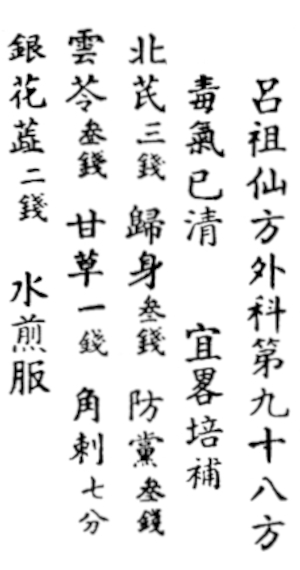 呂祖仙方外科第九十八方
毒氣已清 宜畧培補
北芪三錢 歸身叁錢 防黨叁錢
雲苓叁錢 甘草一錢 角刺七分
銀花蕋二錢 水煎服